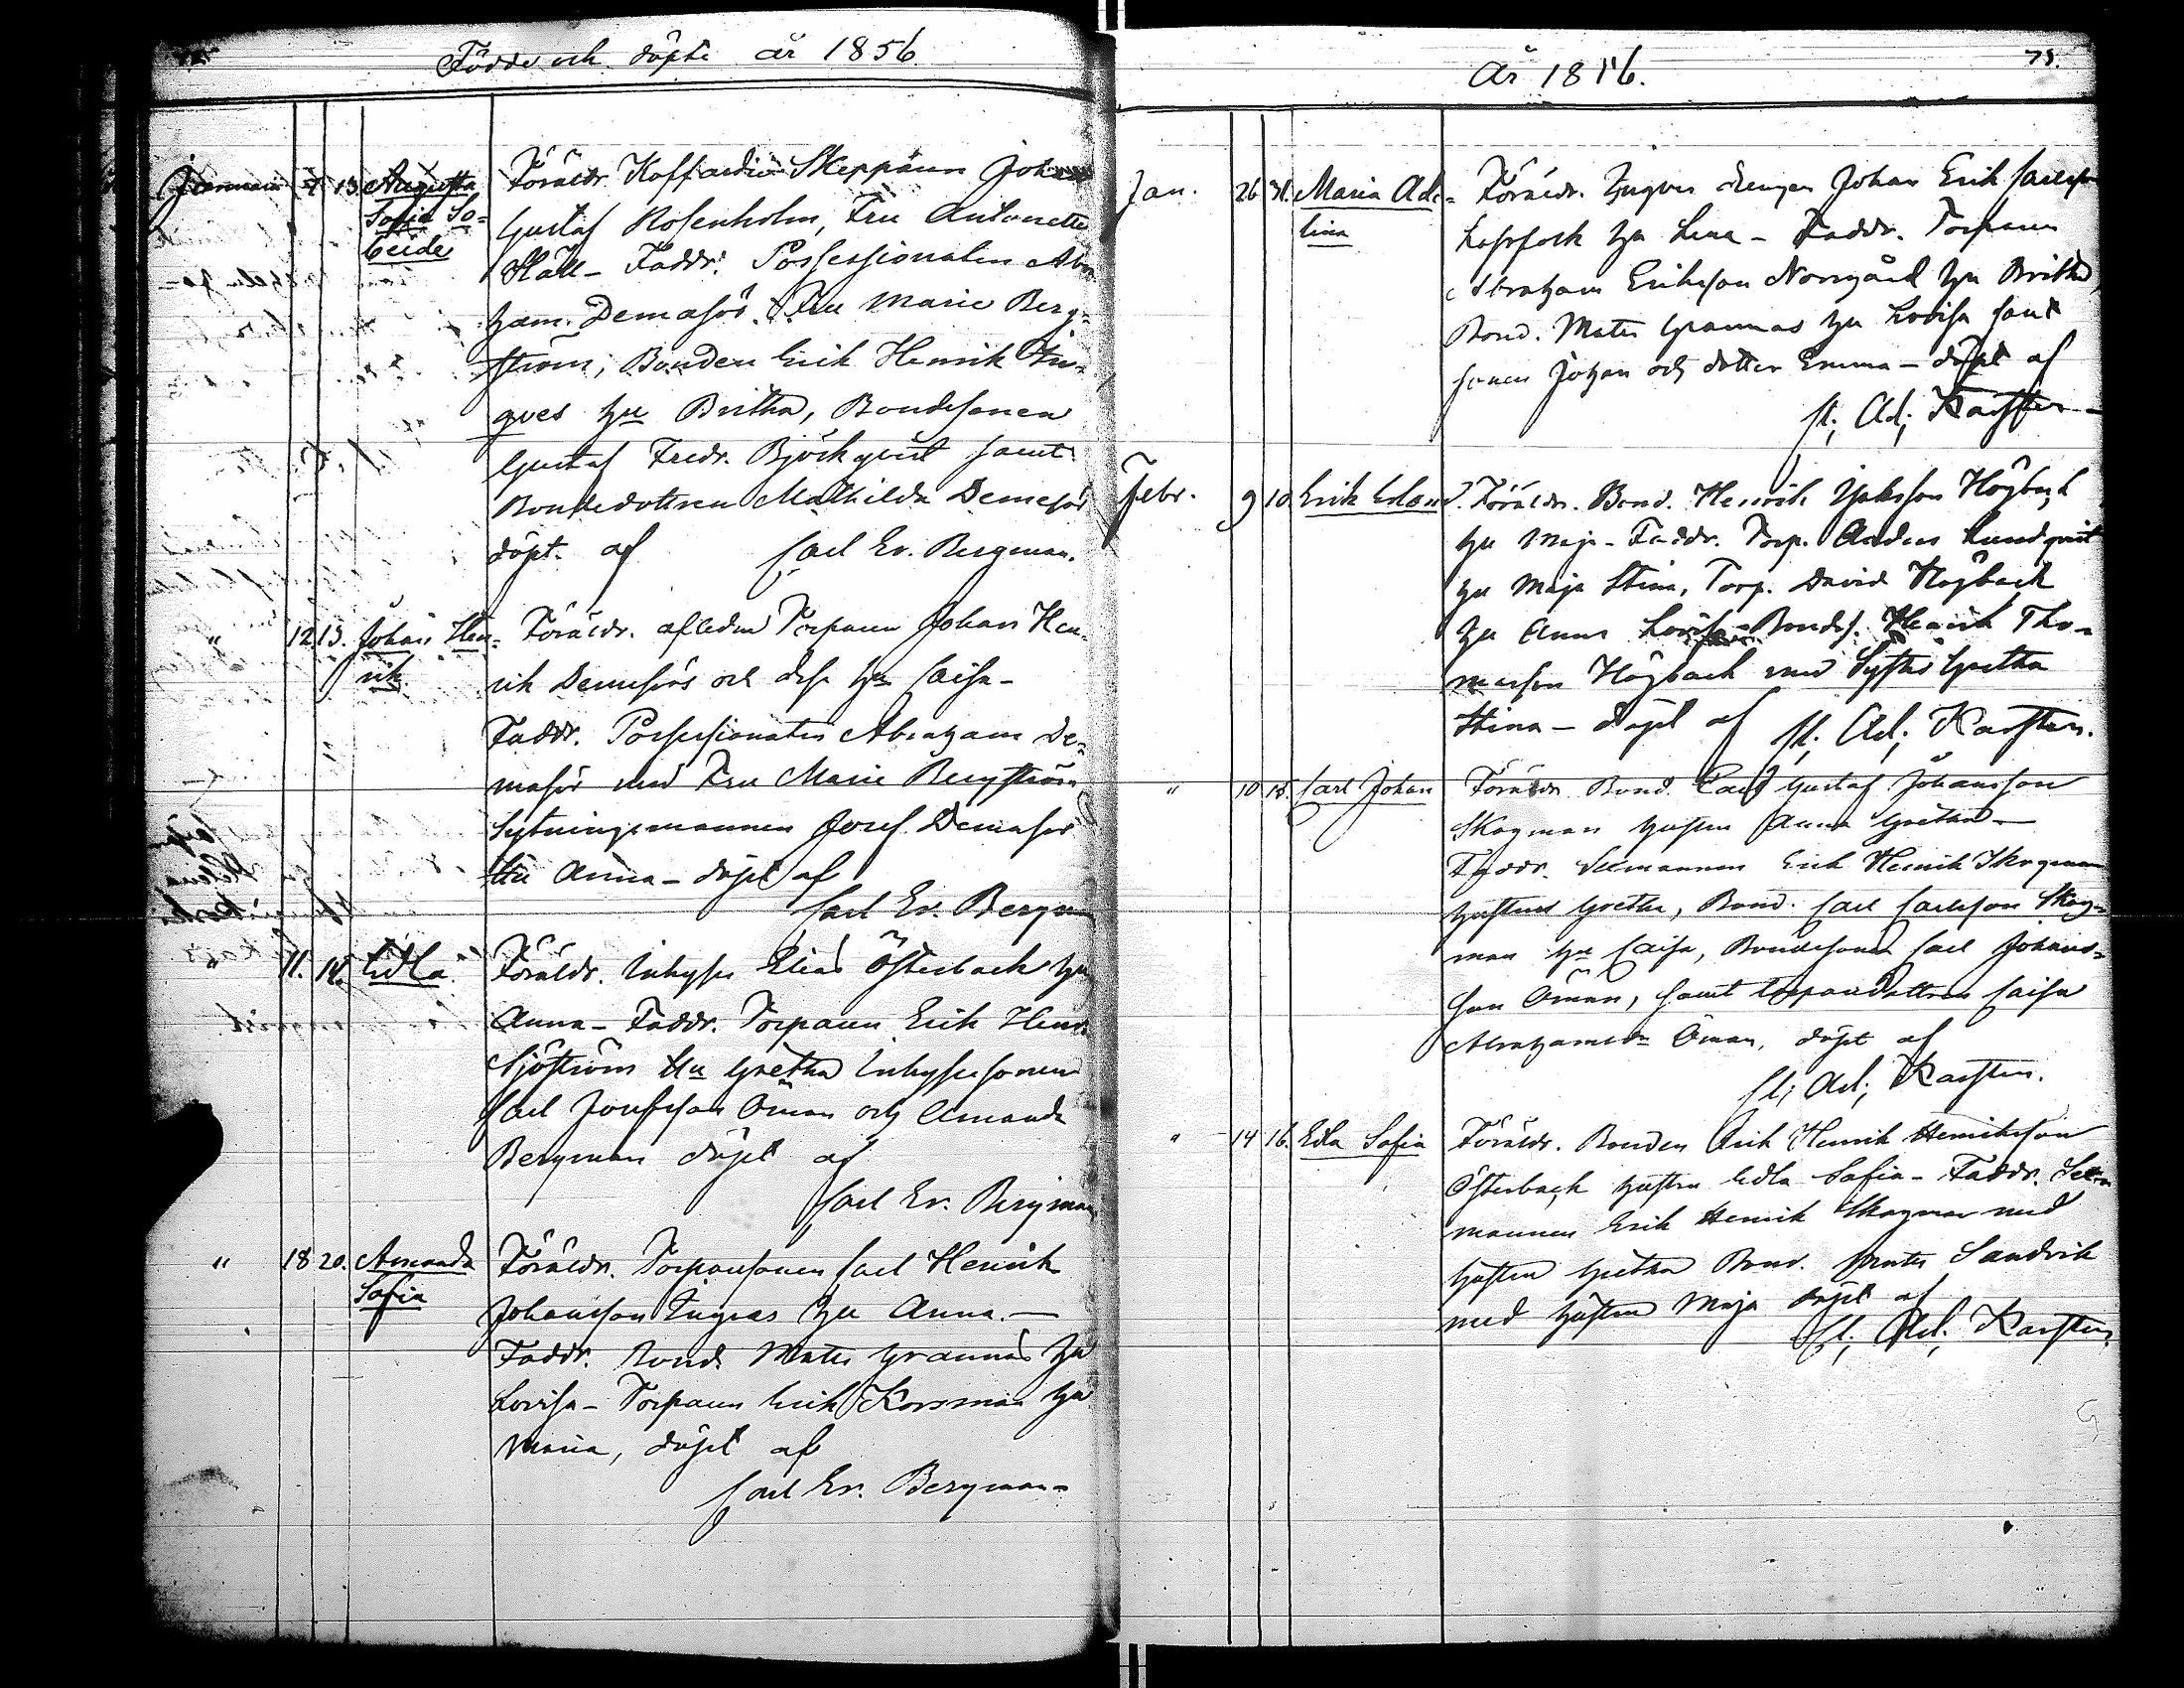 Födde och döpte år 1856
Januarii 7. 13. Augusta Sofia So-
beide
Föräldr. Koffardie Skeppären Johan
Gustaf Rosenholm, Fru Antonette
Häll - Faddr. Possessionaten Abra
ham Demasör, Fru Marie Berg-
ström, Bonden Erik Henrik In-
gves hu Britha, Bondesonen
Gustaf Fredr. Björkqvist samt
Bondedottren Mathilda Demasör
döpt. af Carl Ev. Bergman.
" 12. 13. Johan Hen-
rik
Föräldr. afledne Torparen Johan Hen-
rik Demasörs och dess hu Caisa -
Faddr. Possessionaten Abraham De-
masör med Fru Marie Bergström
Sytningsmannen Josef Demasör
Hu Anna - döpt af
Carl Ev. Bergman
" 11. 14. Edla
Föräldr. Inhyses Elias Österback hu
Anna - Faddr. Torparen Erik Henr.
Sjöström Hu Gretha Inhysesonen
Carl Josefsson Öman och Amanda
Bergman döpt af
Carl Ev. Bergman
" 18 20. Amanda
Sofia
Föräldr. Torparsonen Carl Henrik
Johansson Ingvas hu Anna. -
Faddr. Bond. Matts Grannas hu
Lovisa - Torparen Erik Korsman hu
Maria, döpt af
Carl Ev. Bergman -
År 1856. 75.
Jan. 26 31. Maria Ade-
lina
Föräldr. Yngves drengen Johan Erik Carlsson
hu Lena - Faddr. Torparen
Abraham Eriksson Norrgård hu Britha,
Bond. Matts Grannas hu Lovisa samt
sonen Johan och dotter Emma - döpt af
Cl. Ad. Karsten -
Febr. 9 10. Erik Edvard
Föräldr. Bond. Henrik Högback
hu Maja - Faddr. Torp. Anders Lundqvist
hu Maja Stina, Torp. David Högback
hu Anna Lovisa - Bonds. Henrik Tho-
masson Högback med Syster Gretha
Stina - döpt af Cl. Ad. Karsten.
" 10 15. Carl Johan
Föräldr. Bond. Carl Gustaf Johansson
Skogman hustru Anna Gretha -
Faddr. Sexmannen Erik Henrik Skogman
hustru Gretha, Bond. Carl Carlsson Skog-
man hu Caisa, Bondesonen Carl Johans-
son Öman, samt torparedottren Caisa
Abrahamsdr Öman, döpt af
Cl. Ad. Karsten.
" 14 16. Edla Sofia
Föräldr. Bonden Erik Henrik Henriksson
Österback hustru Edla Sofia - Faddr. Sex-
mannen Erik Henrik Skogman med
hustru Gretha Bond. Matts Sandvik
med hustru Maja döpt af
Cl. Ad. Karsten